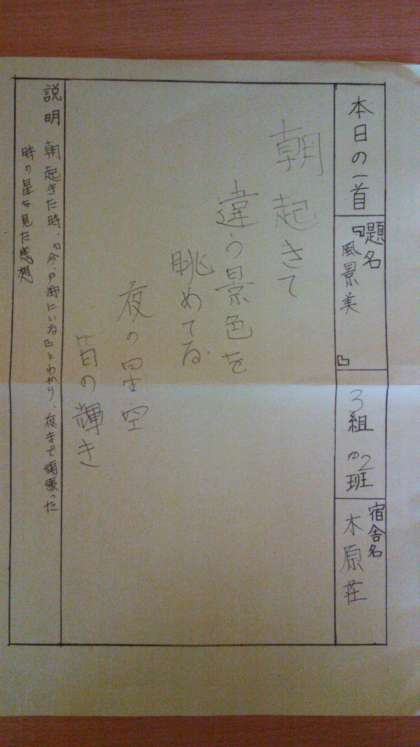 本日の一首
題名
『風景美 』
3組の2班
宿舎名
木原荘
朝起きて
違う景色を
眺めてる
夜の星空
昔の輝き
説明 朝起きた時、『今の街にいる』とわかり、夜まで頑張った
時の星を見た感想